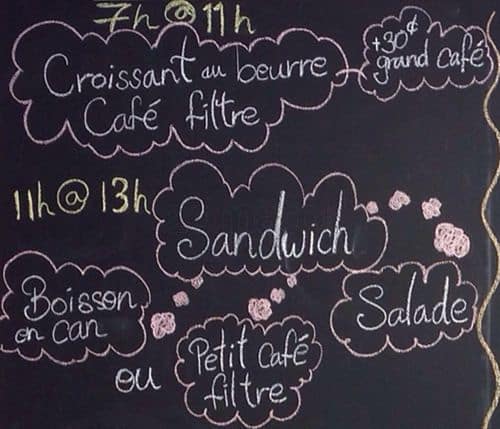 7h @ 11h
Croissant au beurre
Café filtre
+30¢
grand café
11h @ 13h
Sandwich
Salade
Boisson
en can
ou
Petit café
filtre